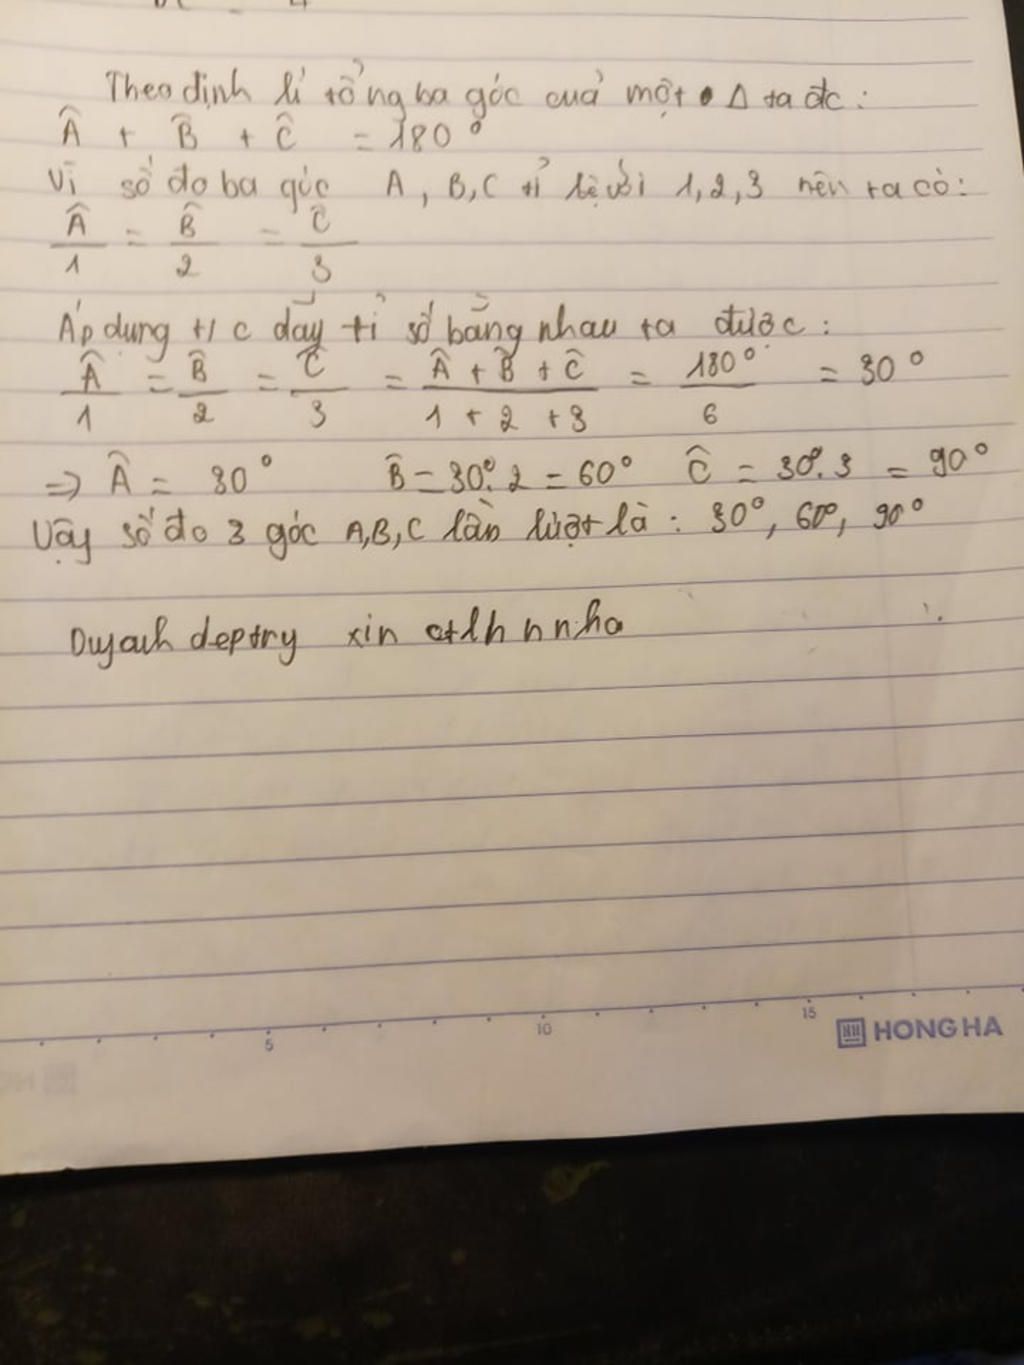 Theo định lí tổng ba góc của một Δ ta đc :
Â + B̂ + Ĉ = 180°
Vì số đo ba góc A, B, C tỉ lệ với 1, 2, 3 nên ta có :
Â/1 = B̂/2 = Ĉ/3
Áp dụng t/c dãy tỉ số bằng nhau ta được :
Â/1 = B̂/2 = Ĉ/3 = Â + B̂ + Ĉ/1 + 2 + 3 = 180°/6 = 30°
=> Â = 30° B̂ = 30°. 2 = 60° Ĉ = 30°. 3 = 90°
Vậy số đo 3 góc A,B,C lần lượt là : 30°, 60°, 90°
deptry xin ctlh n nha
5 10 15
HONG HA